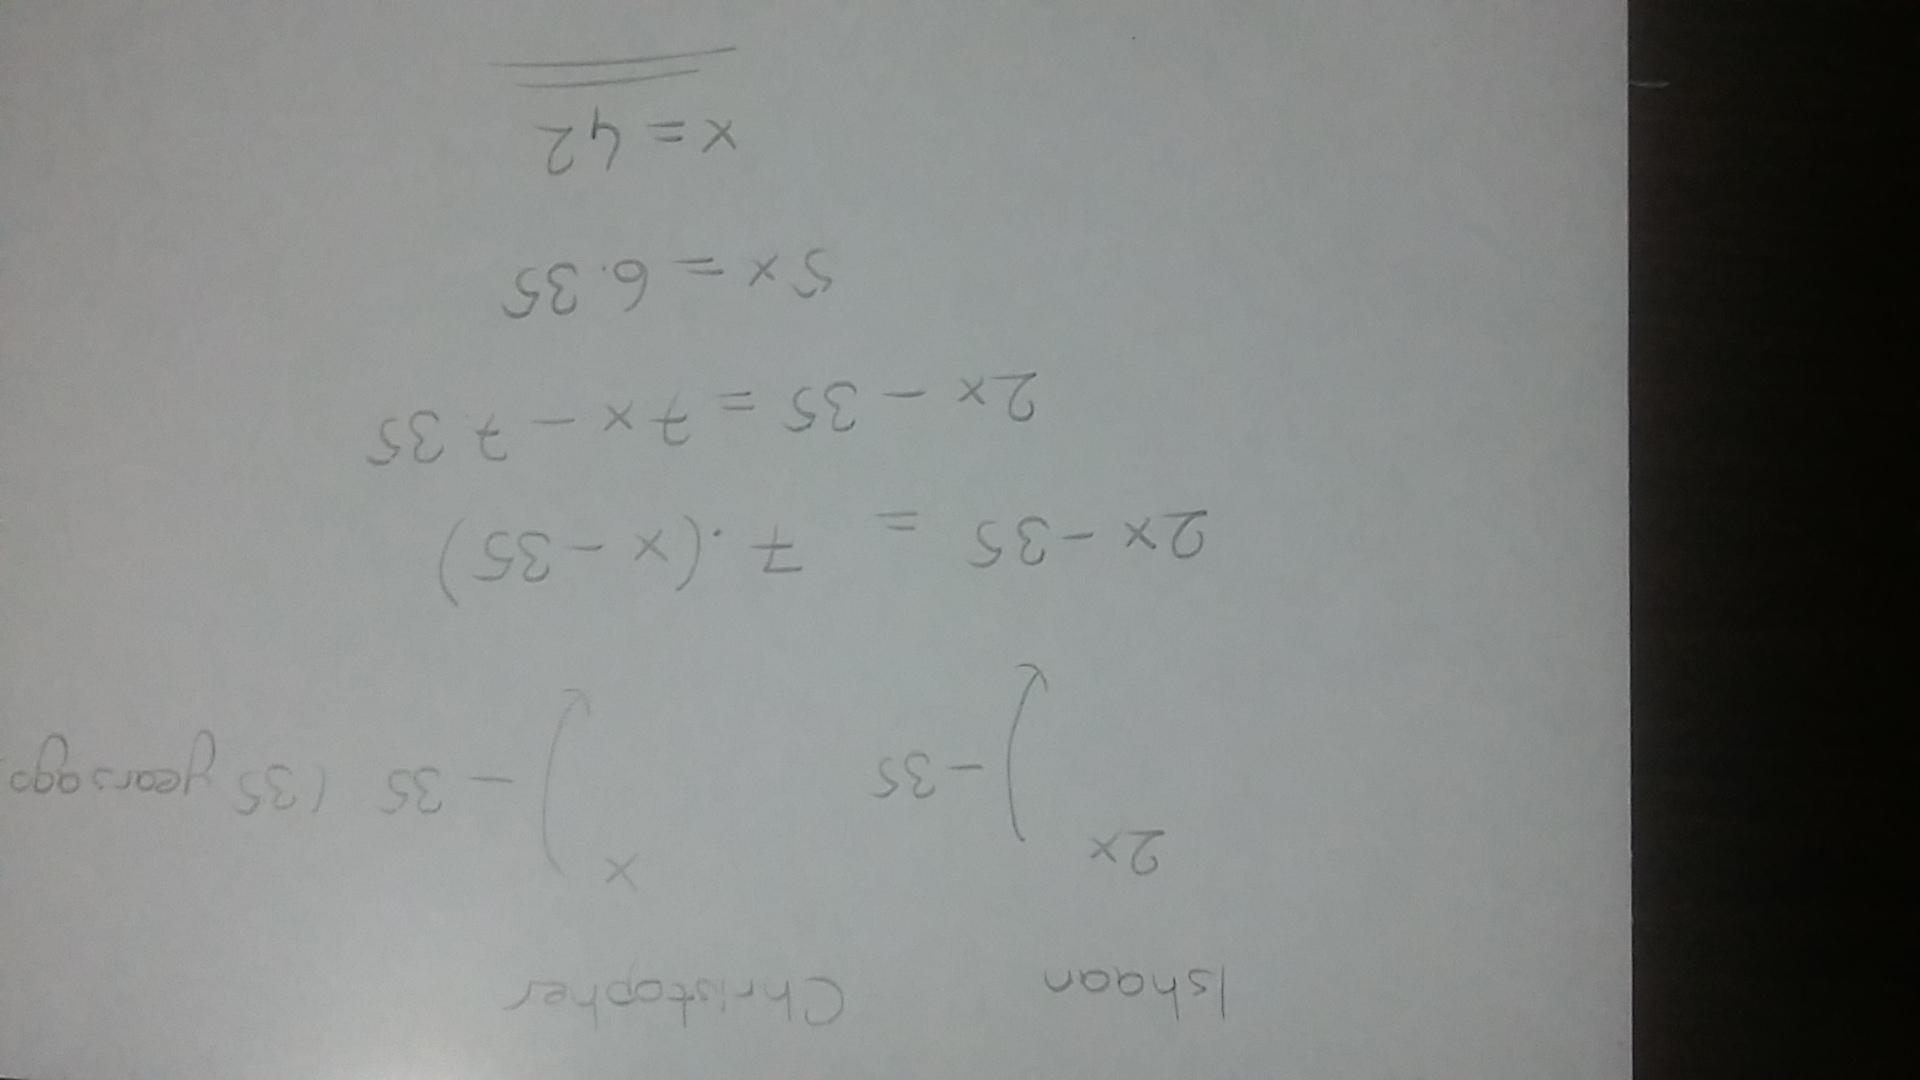 Ishaan Christopher
2x x
-35 - 35 (35 years ago
2x - 35 = 7 · (x - 35)
2x - 35 = 7x - 7 35
5x = 6·35
x = 42